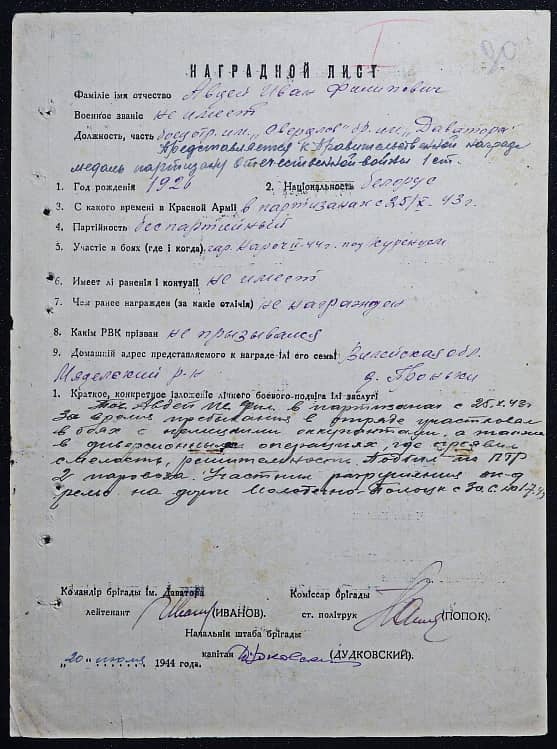 I
90
НАГРАДНОЙ ЛИСТ
Фамиліе імя отчество Авдей Иван Филипович
Военное званіе не имеет
Должность, часть боец отр. им. "Свердлов" бр. им. "Даватора"
Представляется к правительственной награде
медаль партизану отечественной войны 1 ст.
1. Год рожденія 1926 2. Національность белорус
3. С какого времени в Красной Арміі в партизанах с 25/X-43 г.
4. Партійность беспартийный
5. Участіе в боях (где і когда) гар. Нарочь II-44 г. под
6. Имеет лі раненія і контузіі не имеет
7. Чем ранее награжден (за какіе отлічія) не награжден
8. Какім РВК прізван не призывался
9. Домашній адрес представляемого к награде ілі его семьі Вилейская обл.
Мядельский р-н д. Проньки
1. Краткое, конкретное ізложеніе лічного боевого подвіга ілі заслугі
Тов. Авдей Ив. Фил. в партизанах с 25.X.43 г.
За время пребывания в отряде участвовал
в боях с немецкими оккупантами, а также
в диверсионных операциях где проявил
смелость, решительность. Подбил из ПТР
2 паровоза. Участник разрушения ж-д
рельс на дороги Молодечно-Полоцк с
Командір брігады ім. Даватора Коміссар брігады
лейтенант (ИВАНОВ) ст. политрук (ПОПОК).
Начальнік штаба брігады
капітан (ДУДКОВСКИЙ)
"20" июля 1944 года.